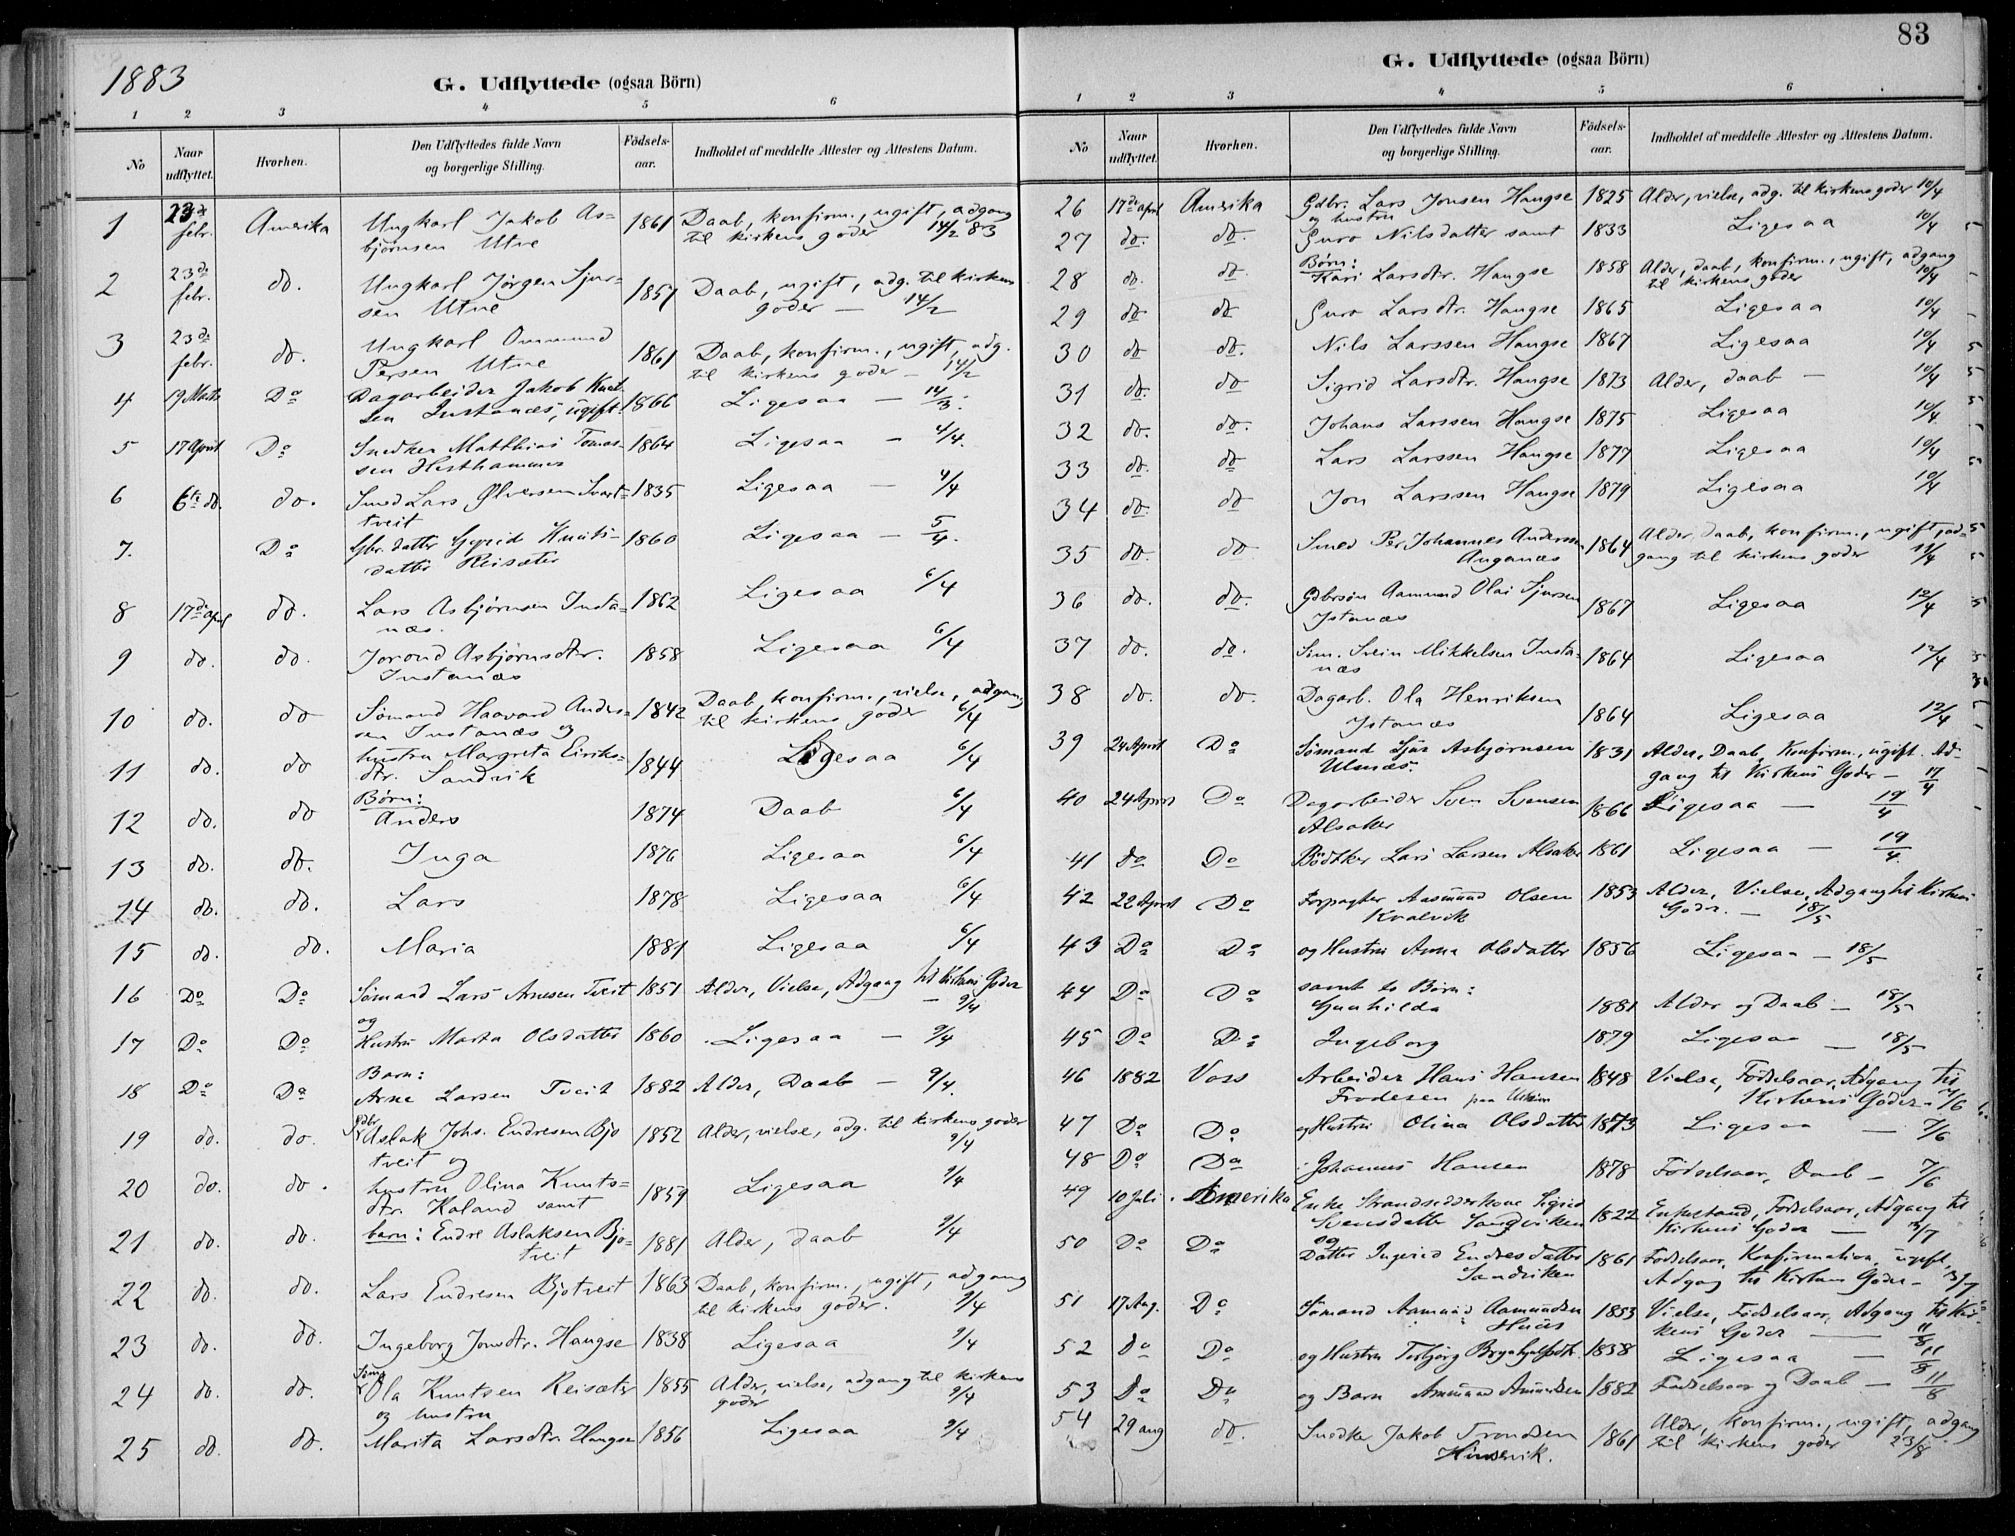 1883
G. Udflyttede (ogsaa Börn)
1 2 3 4 5 6
No Naar udflyttet. Hvorhen. Den Udflyttedes fulde Navn og borgerlige Stilling. Födsels-aar. Indholdet af meddelte Attester og Attestens Datum.
1 23de febr. Amerika Ungkarl Jakob As- 1861 Daab, konfirm., ugift, adgang
bjørnsen Utne til kirkens goder 14/2 83
2 23de febr. do. Ungkarl Jørgen Sjur- 1851 Daab, ugift, adg. til kirkens
sen Utne goder — 14/2
3 23de febr. do. Ungkarl Ommund 1861 Daab, konfirm., ugift, adg.
Persen Utne til kirkens goder — 14/2
4 19 Marts Do Dagarbeider Jakob Knut- 1866 Ligesaa — 14/3.
sen Instanæs, ugift.
5 17 April Do Snedker Matthias Tomas- 1864 Ligesaa — 4/4.
sen Hesthammer
6 6te do. do. Smed Lars Ølversen Svart- 1835 Ligesaa — 4/4
tveit
7. Do Gbr. datter Gyrid Knuts- 1860 Ligesaa — 5/4.
datter Reisæter
8 17de april do. Lars Asbjørnsen Insta- 1862 Ligesaa 6/4
næs.
9 do. do. Jorond Asbjørnsdtr. 1858 Ligesaa 6/4
Instanæs
10 do. do Sømand Haavard Anders- 1842 Daab, konfirm., vielse, adgang
sen Instanæs og til kirkens goder 6/4
11 do. do hustru Margreta Eiriks- 1844 Ligesaa 6/4
dtr. Sandvik
Børn:
12 do. do Anders 1874 Daab 6/4
13 do. do. Inga 1876 Ligesaa 6/4
14 do. do. Lars 1878 Ligesaa 6/4
15 do. do. Maria 1881 Ligesaa 6/4
16 Do Do Sømand Lars Arnesen Tveit 1851 Alder, Vielse, Adgang til Kirkens Goder
og — 9/4
17 Do Do Hustru Marta Olsdatter 1860 Ligesaa — 9/4
Barn:
18 Do Do Arne Larsen Tveit 1882 Alder, Daab — 9/4.
19 do. do. Gdbr. Aslak Johs. Endresen Bjo 1852 Alder, vielse, adg. til kirkens goder
tveit og 9/4
20 do. do. hustru Olina Knuts- 1859 Ligesaa 9/4
dtr. Kaland samt
21 do. do. barn: Endre Aslaksen Bjo- 1881 Alder, daab 9/4
tveit
22 do. do. Lars Endresen Bjotveit 1863 Daab, konfirm., ugift, adgang
til kirkens goder. 9/4
23 do. do. Ingeborg Jonsdtr. Haugse 1838 Ligesaa 9/4
24 do. do. Sømd Ola Knutsen Reisæter 1855 Alder, vielse, adgang til kirkens
og hustru goder 9/4
25 do. do. Marita Larsdtr. Haugse 1856 Ligesaa 9/4
83
G. Udflyttede (ogsaa Börn)
1 2 3 4 5 6
No Naar udflyttet. Hvorhen. Den Udflyttedes fulde Navn og borgerlige Stilling. Födsels-aar. Indholdet af meddelte Attester og Attestens Datum.
26 17de april Amerika Gdbr. Lars Jonsen Haugse 1825 Alder, vielse, adg. til kirkens goder 10/4
og hustru
27 do. do. Guro Nilsdatter samt 1833 Ligesaa 10/4
Børn:
28 do. do. Kari Larsdtr. Haugse 1858 Alder, daab, konfirm., ugift, adgang
til kirkens goder 10/4
29 do do Guro Larsdtr. Haugse 1865 Ligesaa 10/4
30 do do. Nils Larssen Haugse 1867 Ligesaa 10/4
31 do. do Sigrid Larsdtr. Haugse 1873 Alder, daab — 10/4
32 do. do. Johans Larssen Haugse 1875 Ligesaa 10/4
33 do. do Lars Larssen Haugse 1877 Ligesaa 10/4
34 do. do Jon Larssen Haugse 1879 Ligesaa 10/4
35 do. do Smed Per Johannes Anderssen 1864 Alder, daab, konfirm., ugift, ad-
Auganæs gang til kirkens goder 11/4
36 do. do. Gdbrsøn Aamund Olai Sjursen 1867 Ligesaa 12/4
Istanæs
37 do. do. Søm. Svein Mikkelsen Insta- 1864 Ligesaa 12/4
næs
38 do. do. Dagarb. Ola Henriksen 1864 Ligesaa 12/4
Istanæs
39 24 April Do Sømand Sjur Asbjørnsen 1831 Alder, Daab, Konfirm., ugift. Ad-
Ulsnæs. gang til Kirkens Goder — 17/4
40 24 April Do Dagarbeider Sven Svensen 1866 Ligesaa — 19/4
Alsaker
41 Do Do Bödtker Lars Larsen Alsaker 1861 Ligesaa — 19/4.
42 22 April Do Forpagter Aasmund Olsen 1853 Alder, Vielse, Adgang til Kirkens
Kvalvik Goder. — 18/5
43 Do Do og Hustru Anna Olsdatter 1856 Ligesaa — 18/5
44 Do Do samt to Børn:
Gunhilda 1881 Alder og Daab — 18/5
45 Do Do Ingeborg 1879 Ligesaa — 18/5
46 1882 Voss Arbeider Hans Hansen 1848 Vielse, Födselsaar, Adgang til
Frodesen paa Utne Kirkens Goder — 7/6
47 Do Do og Hustru Olina Olsdatter 1873 Ligesaa — 7/6
48 Do Do Johannes Hansen 1878 Födselsaar, Daab — 7/6
49 10 Juli Amerika Enke Strandsidderkone Sigrid 1822 Enkestand, Födselsaar, Adgang til
Svensdatter Sandviken Kirkens Goder — 3/7
og
50 Do Do Datter Ingerid Endresdatter 1861 Födselsaar, Konfirmation, ugift,
Sandviken Adgang til Kirkens Goder — 3/7
51 17 Aug. Do Sømand Aamund Aamundsen 1853 Vielse, Födselsaar, Adgang til Kir-
Huus kens Goder — 11/8
52 Do Do og Hustru Torbjørg 1838 Ligesaa — 11/8
53 Do Do og Barn Aamund Aamundsen 1882 Födselsaar og Daab — 11/8
54 29 aug do. Snedker Jakob Trondsen 1861 Alder, konfirm., ugift, adgang
Kinservik. til kirkens goder 23/8